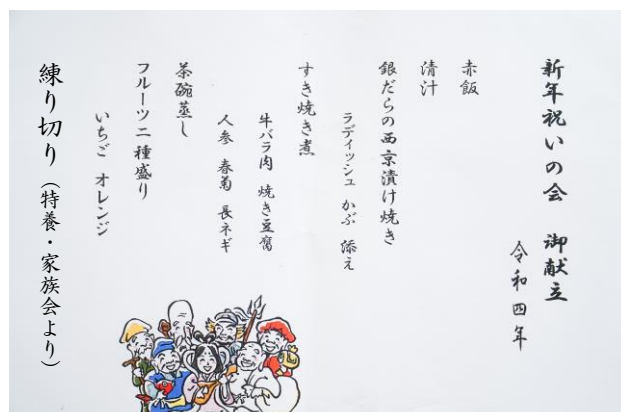 新年祝いの会 御献立
令和四年
赤飯
清汁
銀だらの西京漬け焼き
ラディッシュ かぶ 添え
すき焼き煮
牛バラ肉 焼き豆腐
人参 春菊 長ネギ
茶碗蒸し
フルーツ二種盛り
いちご オレンジ
練り切り(特養・家族会より)